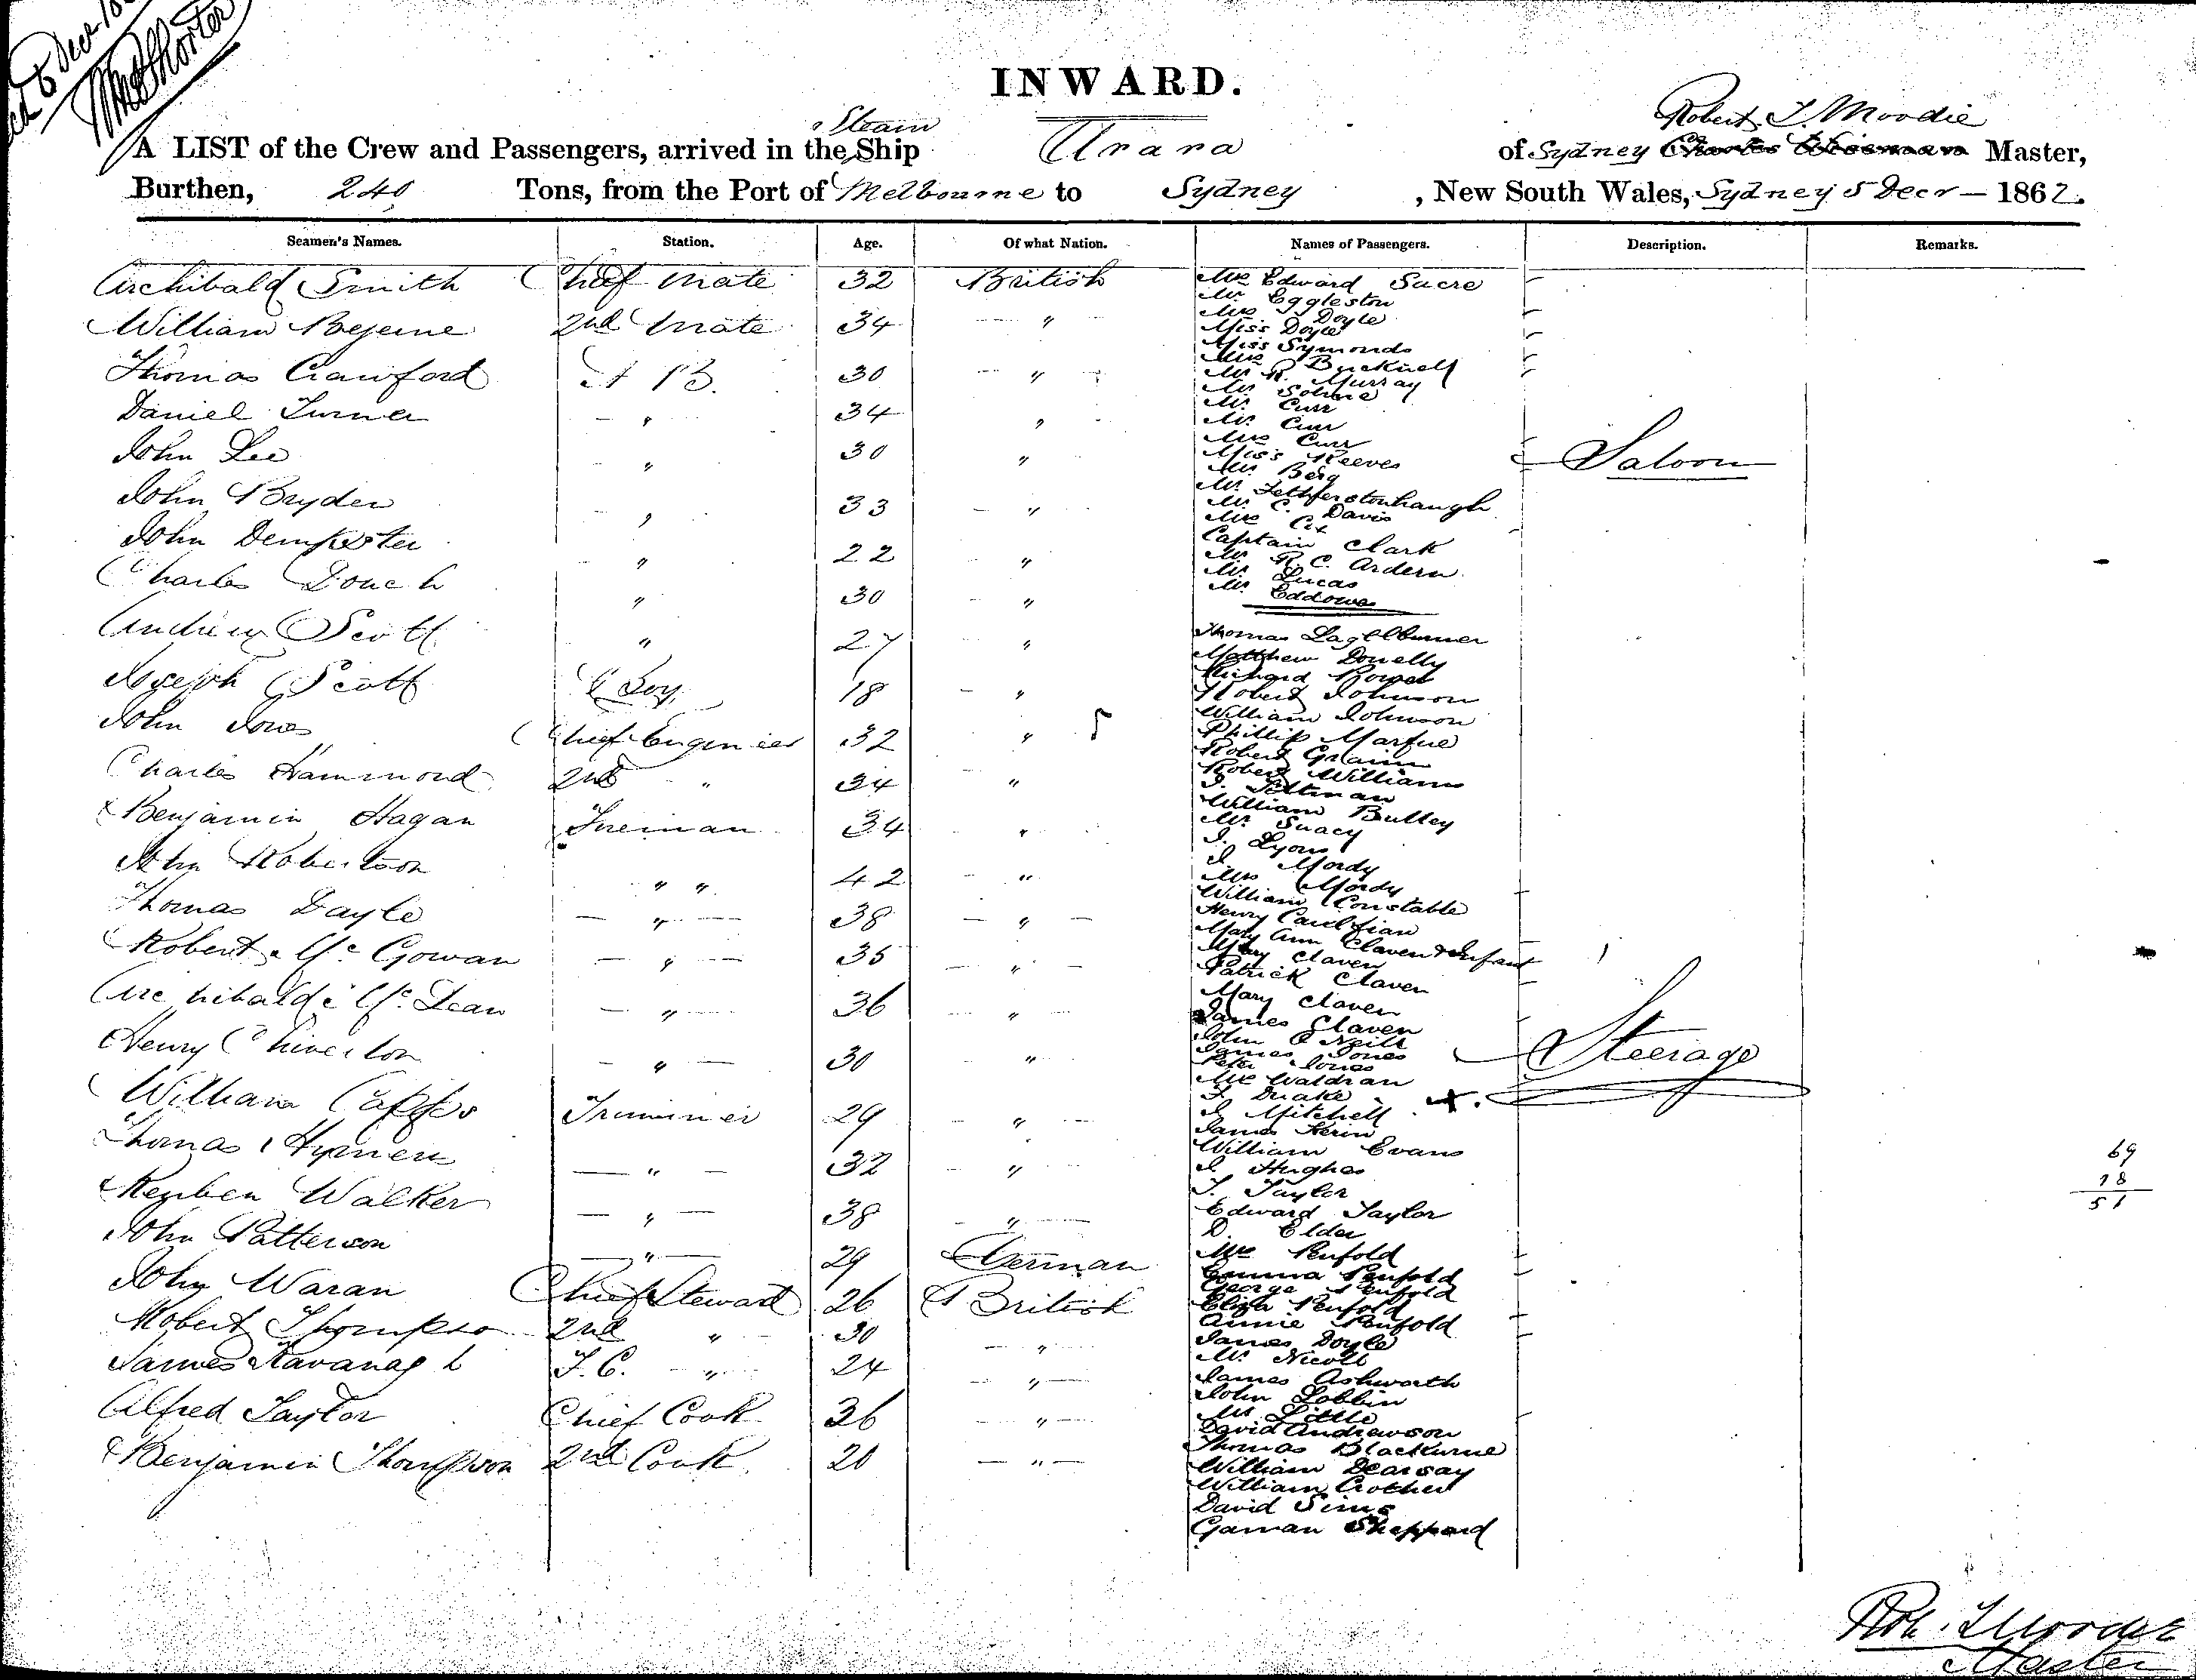 5 Decr 186
INWARD.
A LIST of the Crew and Passengers, arrived in the Steam Ship Urara of Sydney Robert T. Moodie Master,
Burthen, 240 Tons, from the Port of Melbourne to Sydney, New South Wales, Sydney 5 Decr - 1862.
Seamen's Names. Station. Age. Of what Nation. Names of Passengers. Description. Remarks.
Archibald Smith Chief Mate 32 British
William 2nd Mate 34 "
Thomas Crawford A B. 30 "
Daniel Turner " 34 "
John Lee " 30 "
John Bryden " 33 "
John Dempster " 22 "
Charles Douch " 30 "
Andrew Scott " 27 "
Joseph Scott Boy 18 "
John Jones Chief Engineer 32 "
Charles Hammond 2nd " 34 "
Benjamin Hagan Fireman 34 "
John Robertson " " 42 "
Thomas Dayle " 38 "
Robert Mc Gowan " 35 "
Archibald Mc Lean " 36 "
Henry Chiverton " 30 "
William Trimmer 29 "
Thomas " 32 "
Reuben Walker " 38 "
John Patterson " 29 German
John Waran Chief Steward 26 British
Robert Thompson 2nd " 30 "
James Kavanagh F.C. " 24 "
Alfred Taylor Chief Cook 36 "
Benjamin Thompson 2nd Cook 20 "
Mrs Edward Sacre
Mr Eggleston
Mrs Doyle
Miss Doyle
Miss Symonds
Mrs Bucknell
Mr R. Murray
Mr
Mr. Curr
Mr. Curr
Mrs Curr
Miss Reeves
Mr. Berg
Mr. Fetherstonhaugh
Mr. C. Davis
Mrs
Captain Clark
Mr R. C. Ardern
Mr Lucas
Mr. Eddowes
Saloon
Thomas
Matthew Donelly
Richard
Robert Johnson
William Johnson
Phillip
Robert
Robert Williams
William Bulley
Mr.
J. Lyons
J. Mordy
Mrs Mordy
William Constable
Henry
Mary Ann Claven & Infant
Mary Claven
Patrick Claven
Mary Claven
James Claven
John O Neill
James Jones
Peter Jones
Mrs Waldran
J. Drake
J Mitchell
James Kerin
William Evans
J Hughes
J. Taylor
Edward Taylor
D. Elder
Mrs Penfold
Emma Penfold
George Penfold
Eliza Penfold
Annie Penfold
James Doyle
Mr. Nicoll
James Ashworth
John Lobbin
Mr Little
David Andrewson
Thomas Blackburne
William Dearsay
William Crother
David Sims
Gaman Sheppard
Steerage
69
18
51
Rob. T Moodie
Master